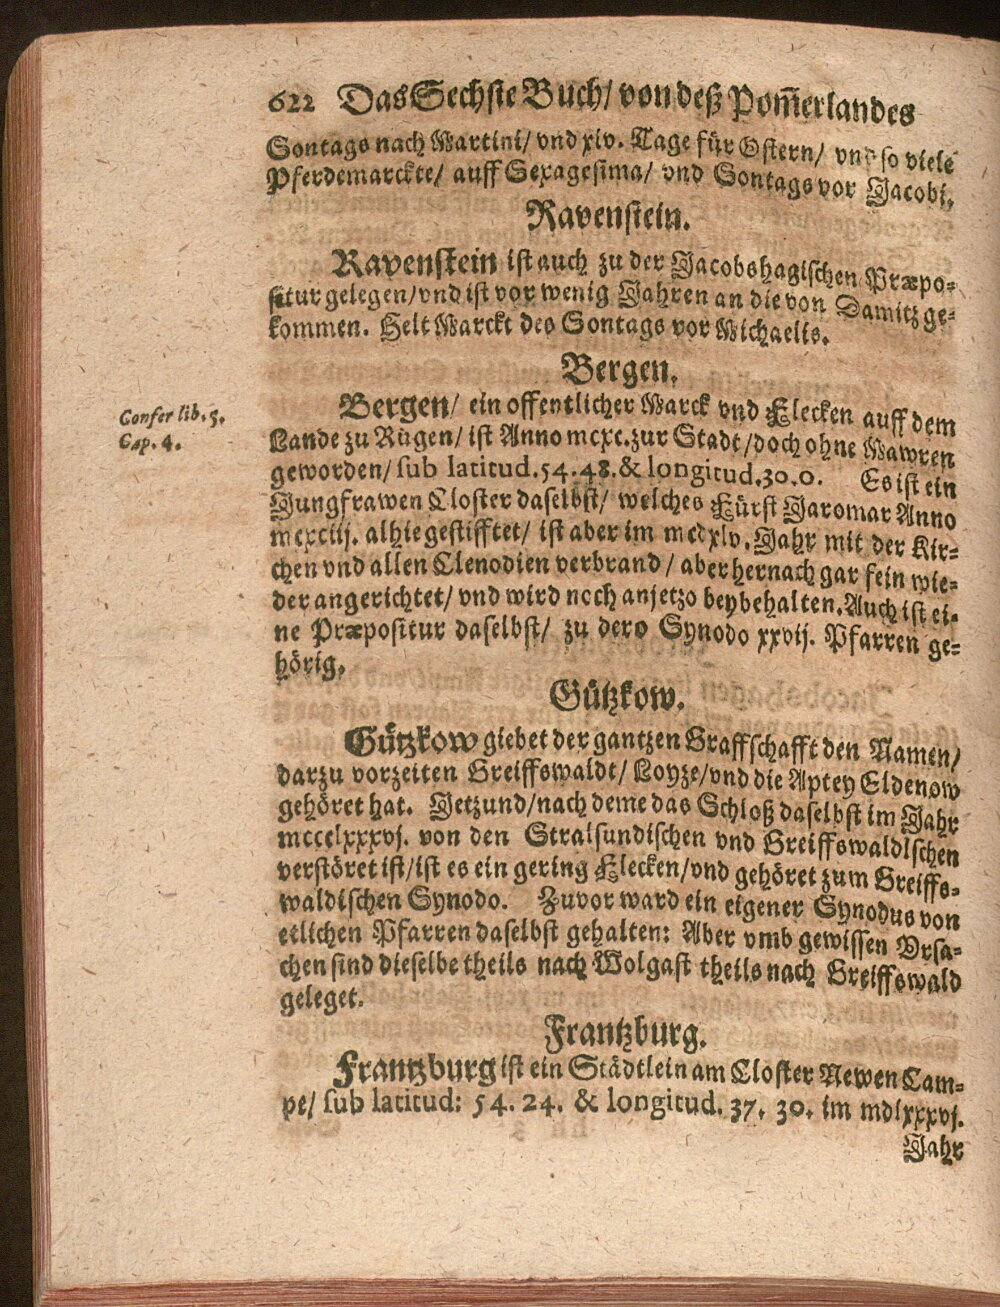 622 Das Sechste Buch/ von deß Pom̃erlandes
Sontags nach Martini/ vnd xiv. Tage für Ostern/ vnd so viele
Pferdemarckte/ auff Sexagesima/ vnd Sontags vor Jacobi.
Ravenstein.
Ravenstein ist auch zu der Jacobshagischen Præpo-
situr gelegen/ vnd ist vor wenig Jahren an die von Damitz ge-
kommen. Helt Marckt des Sontags vor Michaelis.
Bergen.
Confer lib. 5.
Cap. 4.
Bergen/ ein offentlicher Marck vnd Flecken auff dem
Lande zu Rügen/ ist Anno mcxc. zur Stadt/ doch ohne Mawren
geworden/ sub latitud. 54. 48. & longitud. 30. 0. Es ist ein
Jungfrawen Closter daselbst/ welches Fürst Jaromar Anno
mcxciij. alhie gestifftet/ ist aber im mcdxlv. Jahr mit der Kir-
chen vnd allen Clenodien verbrand/ aber hernach gar fein wie-
der angerichtet/ vnd wird noch anjetzo beybehalten. Auch ist ei-
ne Præpositur daselbst/ zu dero Synodo xxvij. Pfarren ge-
hörig.
Gützkow.
Gützkow giebet der gantzen Graffschafft den Namen/
darzu vorzeiten Greiffswaldt/ Loyze/ vnd die Aptey Eldenow
gehöret hat. Jetzund/ nach deme das Schloß daselbst im Jahr
mccclxxxvj. von den Stralsundischen vnd Greiffswaldischen
verstöret ist/ ist es ein gering Flecken/ vnd gehöret zum Greiffs-
waldischen Synodo. Zuvor ward ein eigener Synodus von
etlichen Pfarren daselbst gehalten: Aber vmb gewissen Vrsa-
chen sind dieselbe theils nach Wolgast theils nach Greiffswald
geleget.
Frantzburg.
Frantzburg ist ein Städtlein am Closter Newen Cam-
pe/ sub latitud: 54. 24. & longitud. 37. 30. im mdlxxxvj.
Jahr